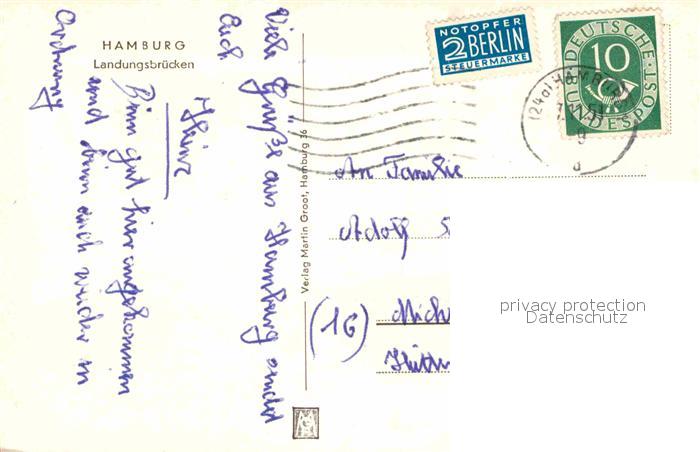 HAMBURG
Landungsbrücken
Viele Grüße aus Hamburg sendet
Euch
Heinz
Bin gut hier angekommen
und bin auch wieder in
Ordnung
Verlag Martin Groot, Hamburg 36
NOTOPFER
2 BERLIN
STEUERMARKE
DEUTSCHE
10
BUNDESPOST
(24a) HAMBURG
An Familie
Adolf S
(16) Mich
Hütt
privacy protection
Datenschutz